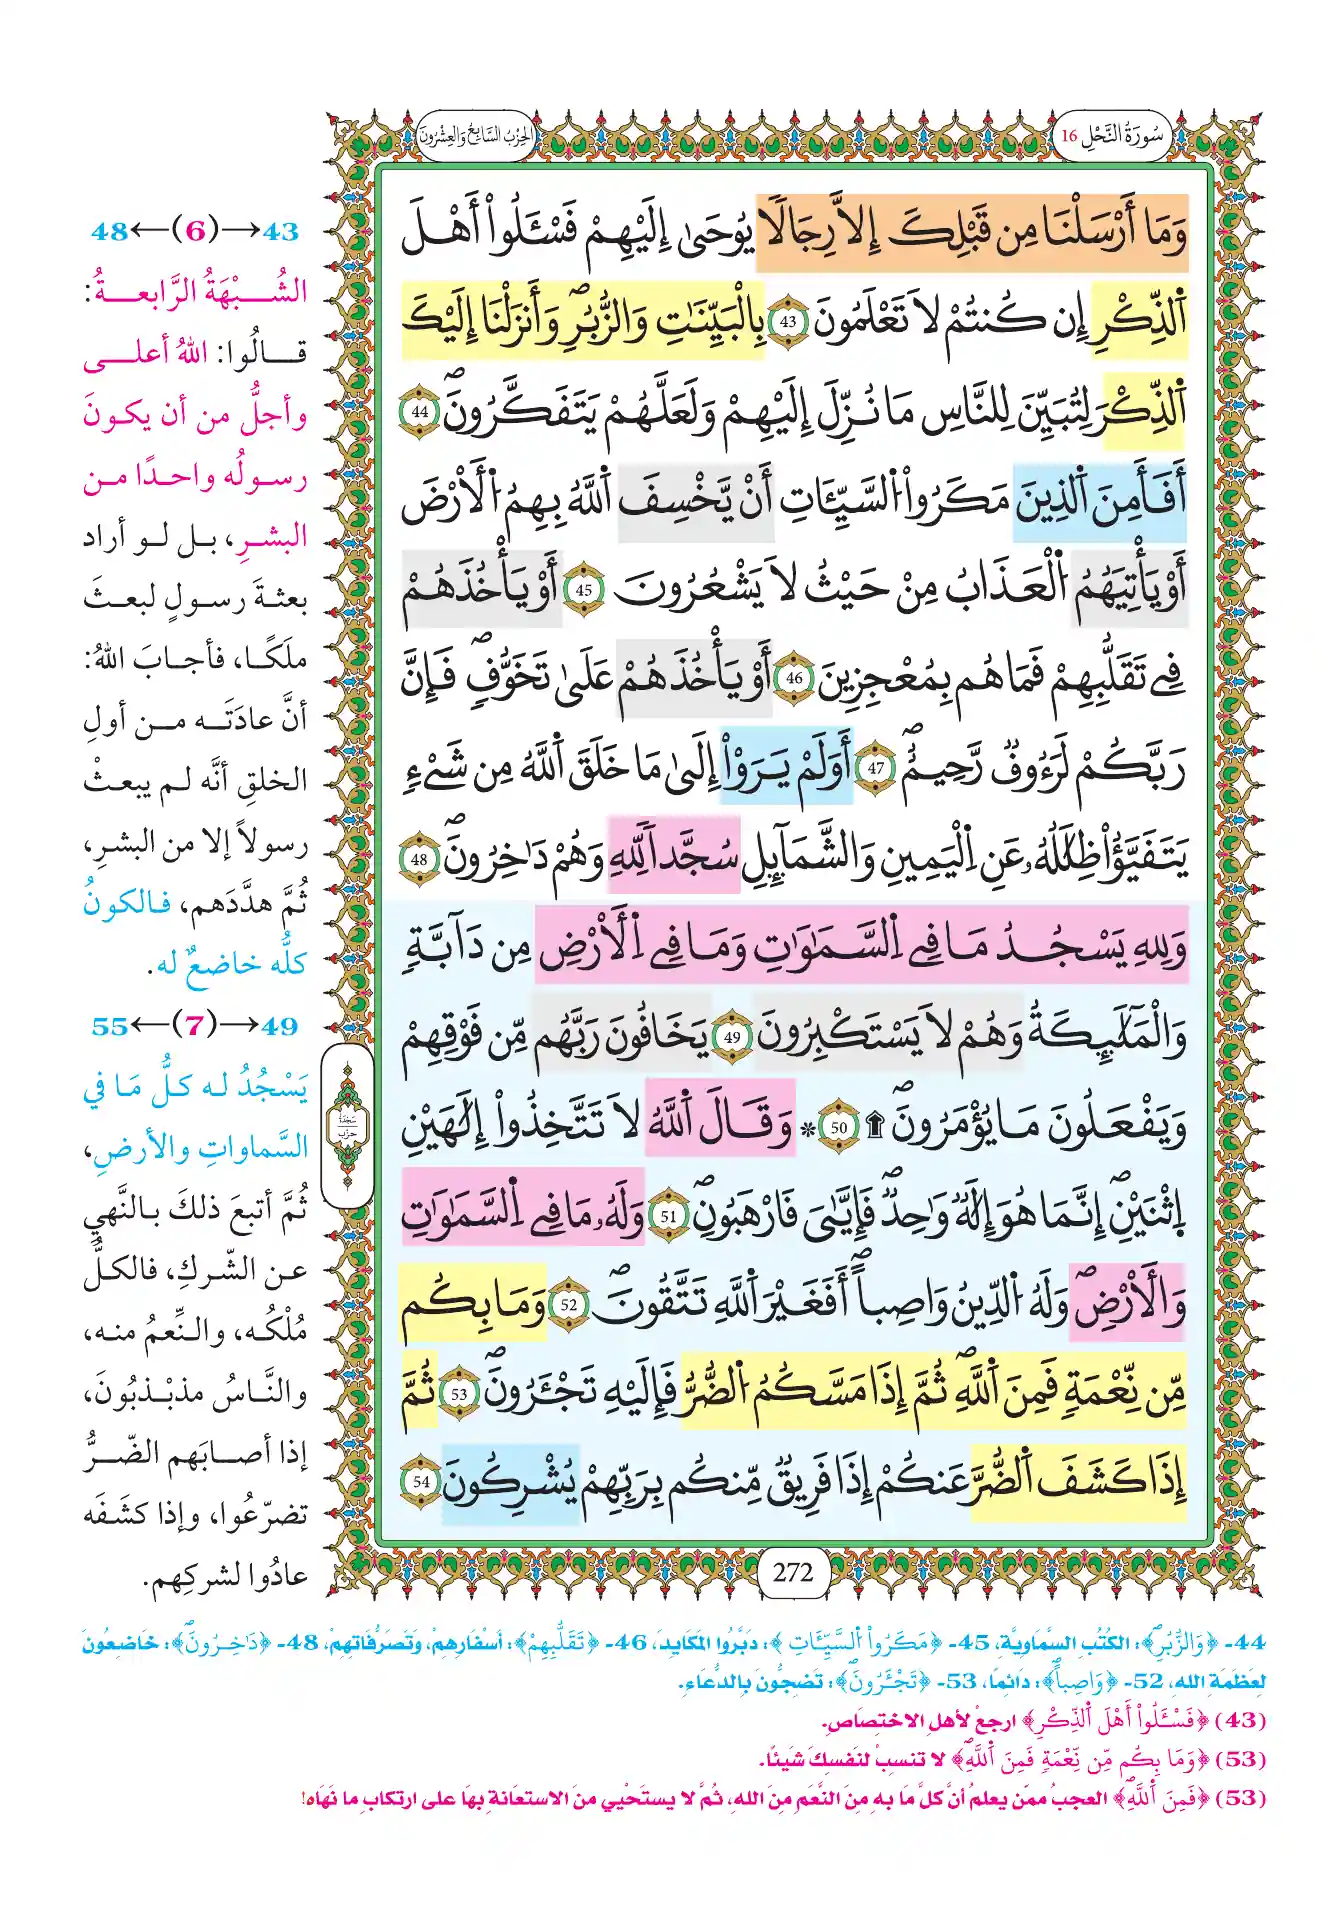 سُورَةُ النَّحْلِ 16
الحِزْبُ السَّابِعُ وَالعِشْرُونَ
وَمَا أَرْسَلْنَا مِن قَبْلِكَ إِلاَّ رِجَالًا يُوحَىٰ إِلَيْهِمْ فَسْـَٔلُواْ أَهْلَ
اَ۬لذِّكْرِ إِن كُنتُمْ لاَ تَعْلَمُونَ 43 بِالْبَيِّنَٰتِ وَالزُّبُرِۖ وَأَنزَلْنَا إِلَيْكَ
اَ۬لذِّكْرَ لِتُبَيِّنَ لِلنَّاسِ مَا نُزِّلَ إِلَيْهِمْ وَلَعَلَّهُمْ يَتَفَكَّرُونَۖ 44
أَفَأَمِنَ اَ۬لذِينَ مَكَرُواْ اُ۬لسَّيِّـَٔاتِ أَنْ يَّخْسِفَ اَ۬للَّهُ بِهِمُ اُ۬لَارْضَ
أَوْ يَأْتِيَهُمُ اُ۬لْعَذَابُ مِنْ حَيْثُ لاَ يَشْعُرُونَ 45 أَوْ يَأْخُذَهُمْ
فِے تَقَلُّبِهِمْ فَمَا هُم بِمُعْجِزِينَ 46 أَوْ يَأْخُذَهُمْ عَلَىٰ تَخَوُّفٖۖ فَإِنَّ
رَبَّكُمْ لَرَءُوفٞ رَّحِيمٌۖ 47 أَوَلَمْ يَرَوِاْ اِلَىٰ مَا خَلَقَ اَ۬للَّهُ مِن شَےْءٖ
يَتَفَيَّؤُاْ ظِلَٰلُهُۥ عَنِ اِ۬لْيَمِينِ وَالشَّمَآئِلِ سُجَّداٗ لِّلهِ وَهُمْ دَٰخِرُونَۖ 48
وَلِلهِ يَسْجُدُ مَا فِے اِ۬لسَّمَٰوَٰتِ وَمَا فِے اِ۬لَارْضِ مِن دَآبَّةٖ
وَالْمَلَٰٓئِكَةُ وَهُمْ لاَ يَسْتَكْبِرُونَ 49 يَخَافُونَ رَبَّهُم مِّن فَوْقِهِمْ
وَيَفْعَلُونَ مَا يُؤْمَرُونَۖ ۩ 50 * وَقَالَ اَ۬للَّهُ لاَ تَتَّخِذُواْ إِلَٰهَيْنِ
اِ۪ثْنَيْنِۖ إِنَّمَا هُوَ إِلَٰهٞ وَٰحِدٞۖ فَإِيَّٰىَ فَارْهَبُونِۖ 51 وَلَهُۥ مَا فِے اِ۬لسَّمَٰوَٰتِ
وَالَارْضِۖ وَلَهُ اُ۬لدِّينُ وَاصِباًۖ أَفَغَيْرَ اَ۬للَّهِ تَتَّقُونَۖ 52 وَمَا بِكُم
مِّن نِّعْمَةٖ فَمِنَ اَ۬للَّهِۖ ثُمَّ إِذَا مَسَّكُمُ اُ۬لضُّرُّ فَإِلَيْهِ تَجْـَٔرُونَۖ 53 ثُمَّ
إِذَا كَشَفَ اَ۬لضُّرَّ عَنكُمْ إِذَا فَرِيقٞ مِّنكُم بِرَبِّهِمْ يُشْرِكُونَ 54
272
سَجْدَة
حِزْب
43→(6)←48
الشُّبْهَةُ الرَّابِعةُ:
قالُوا: اللهُ أعلى
وأجلُّ من أن يكونَ
رسولُه واحدًا من
البشرِ، بل لو أراد
بعثةَ رسولٍ لبعثَ
ملَكًا، فأجابَ اللهُ:
أنَّ عادَتَه من أولِ
الخلقِ أنَّه لم يبعثْ
رسولاً إلا من البشرِ،
ثُمَّ هدَّدَهم، فالكونُ
كلُّه خاضعٌ له.
49→(7)←55
يَسْجُدُ له كلُّ مَا في
السَّماواتِ والأرضِ،
ثُمَّ أتبعَ ذلكَ بالنَّهيِ
عن الشّركِ، فالكلُّ
مُلْكُه، والنِّعمُ منه،
والنَّاسُ مذبْذبُونَ،
إذا أصابَهم الضّرُّ
تضرّعُوا، وإذا كشَفَه
عادُوا لشركِهم.
44- ﴿وَالزُّبُرِۖ﴾: الكُتُبِ السَّمَاوِيَّةِ، 45- ﴿مَكَرُواْ اُ۬لسَّيِّـَٔاتِ﴾: دَبَّرُوا المَكَايِدَ، 46- ﴿تَقَلُّبِهِمْ﴾: أَسْفَارِهِمْ، وَتَصَرُّفَاتِهِمْ، 48- ﴿دَٰخِرُونَۖ﴾: خَاضِعُونَ
لِعَظَمَةِ اللهِ، 52- ﴿وَاصِباًۖ﴾: دَائِمًا، 53- ﴿تَجْـَٔرُونَۖ﴾: تَضِجُّونَ بِالدُّعَاءِ.
(43) ﴿فَسْـَٔلُواْ أَهْلَ اَ۬لذِّكْرِ﴾ ارجعْ لأهلِ الاختصَاصِ.
(53) ﴿وَمَا بِكُم مِّن نِّعْمَةٖ فَمِنَ اَ۬للَّهِۖ﴾ لا تنسبْ لنَفسِكَ شَيئًا.
(53) ﴿فَمِنَ اَ۬للَّهِۖ﴾ العجبُ ممّن يعلمُ أنَّ كلَّ مَا بهِ مِنَ النَّعَمِ مِنَ اللهِ، ثُمَّ لا يستَحْيي مِنَ الاستعَانةِ بِهَا على ارتكابِ ما نَهَاه!